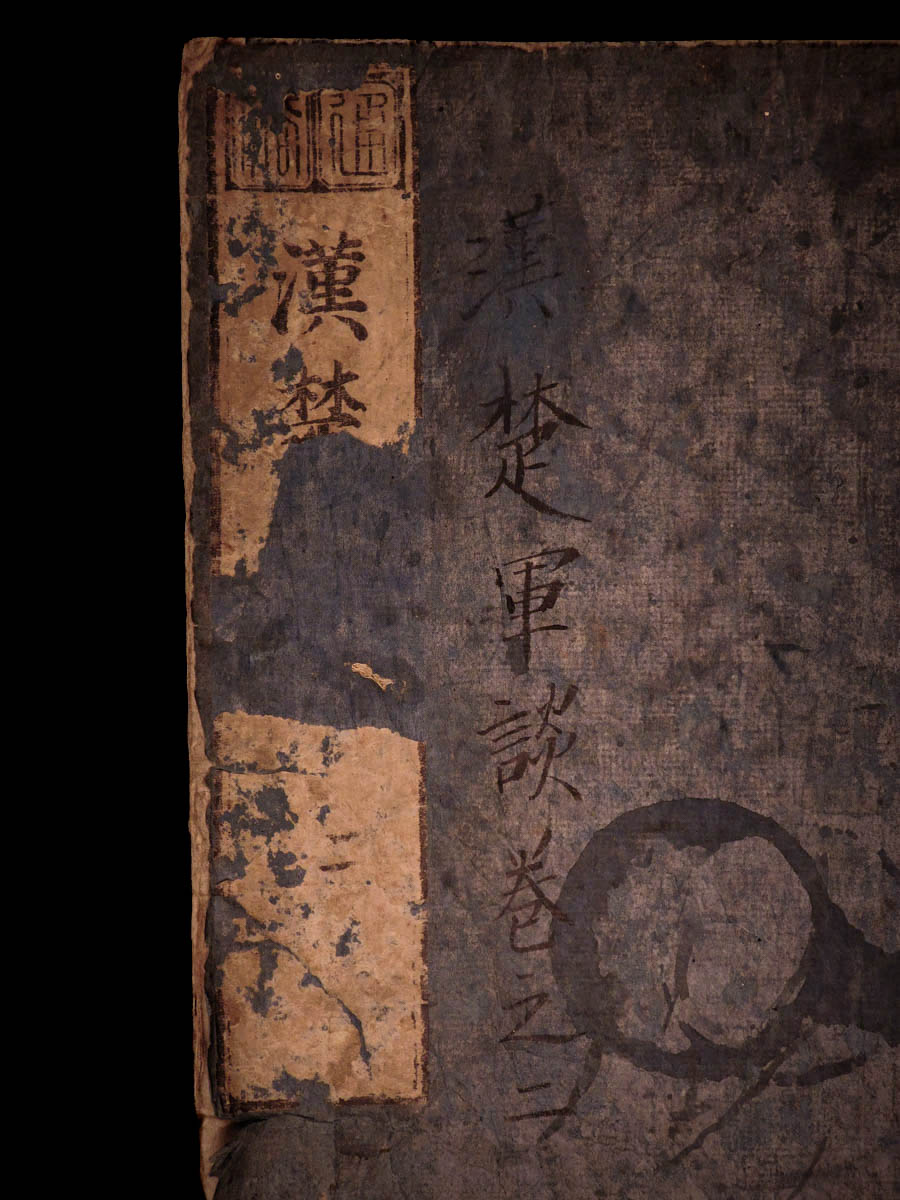 漢楚軍談巻之二
通俗
漢楚
二